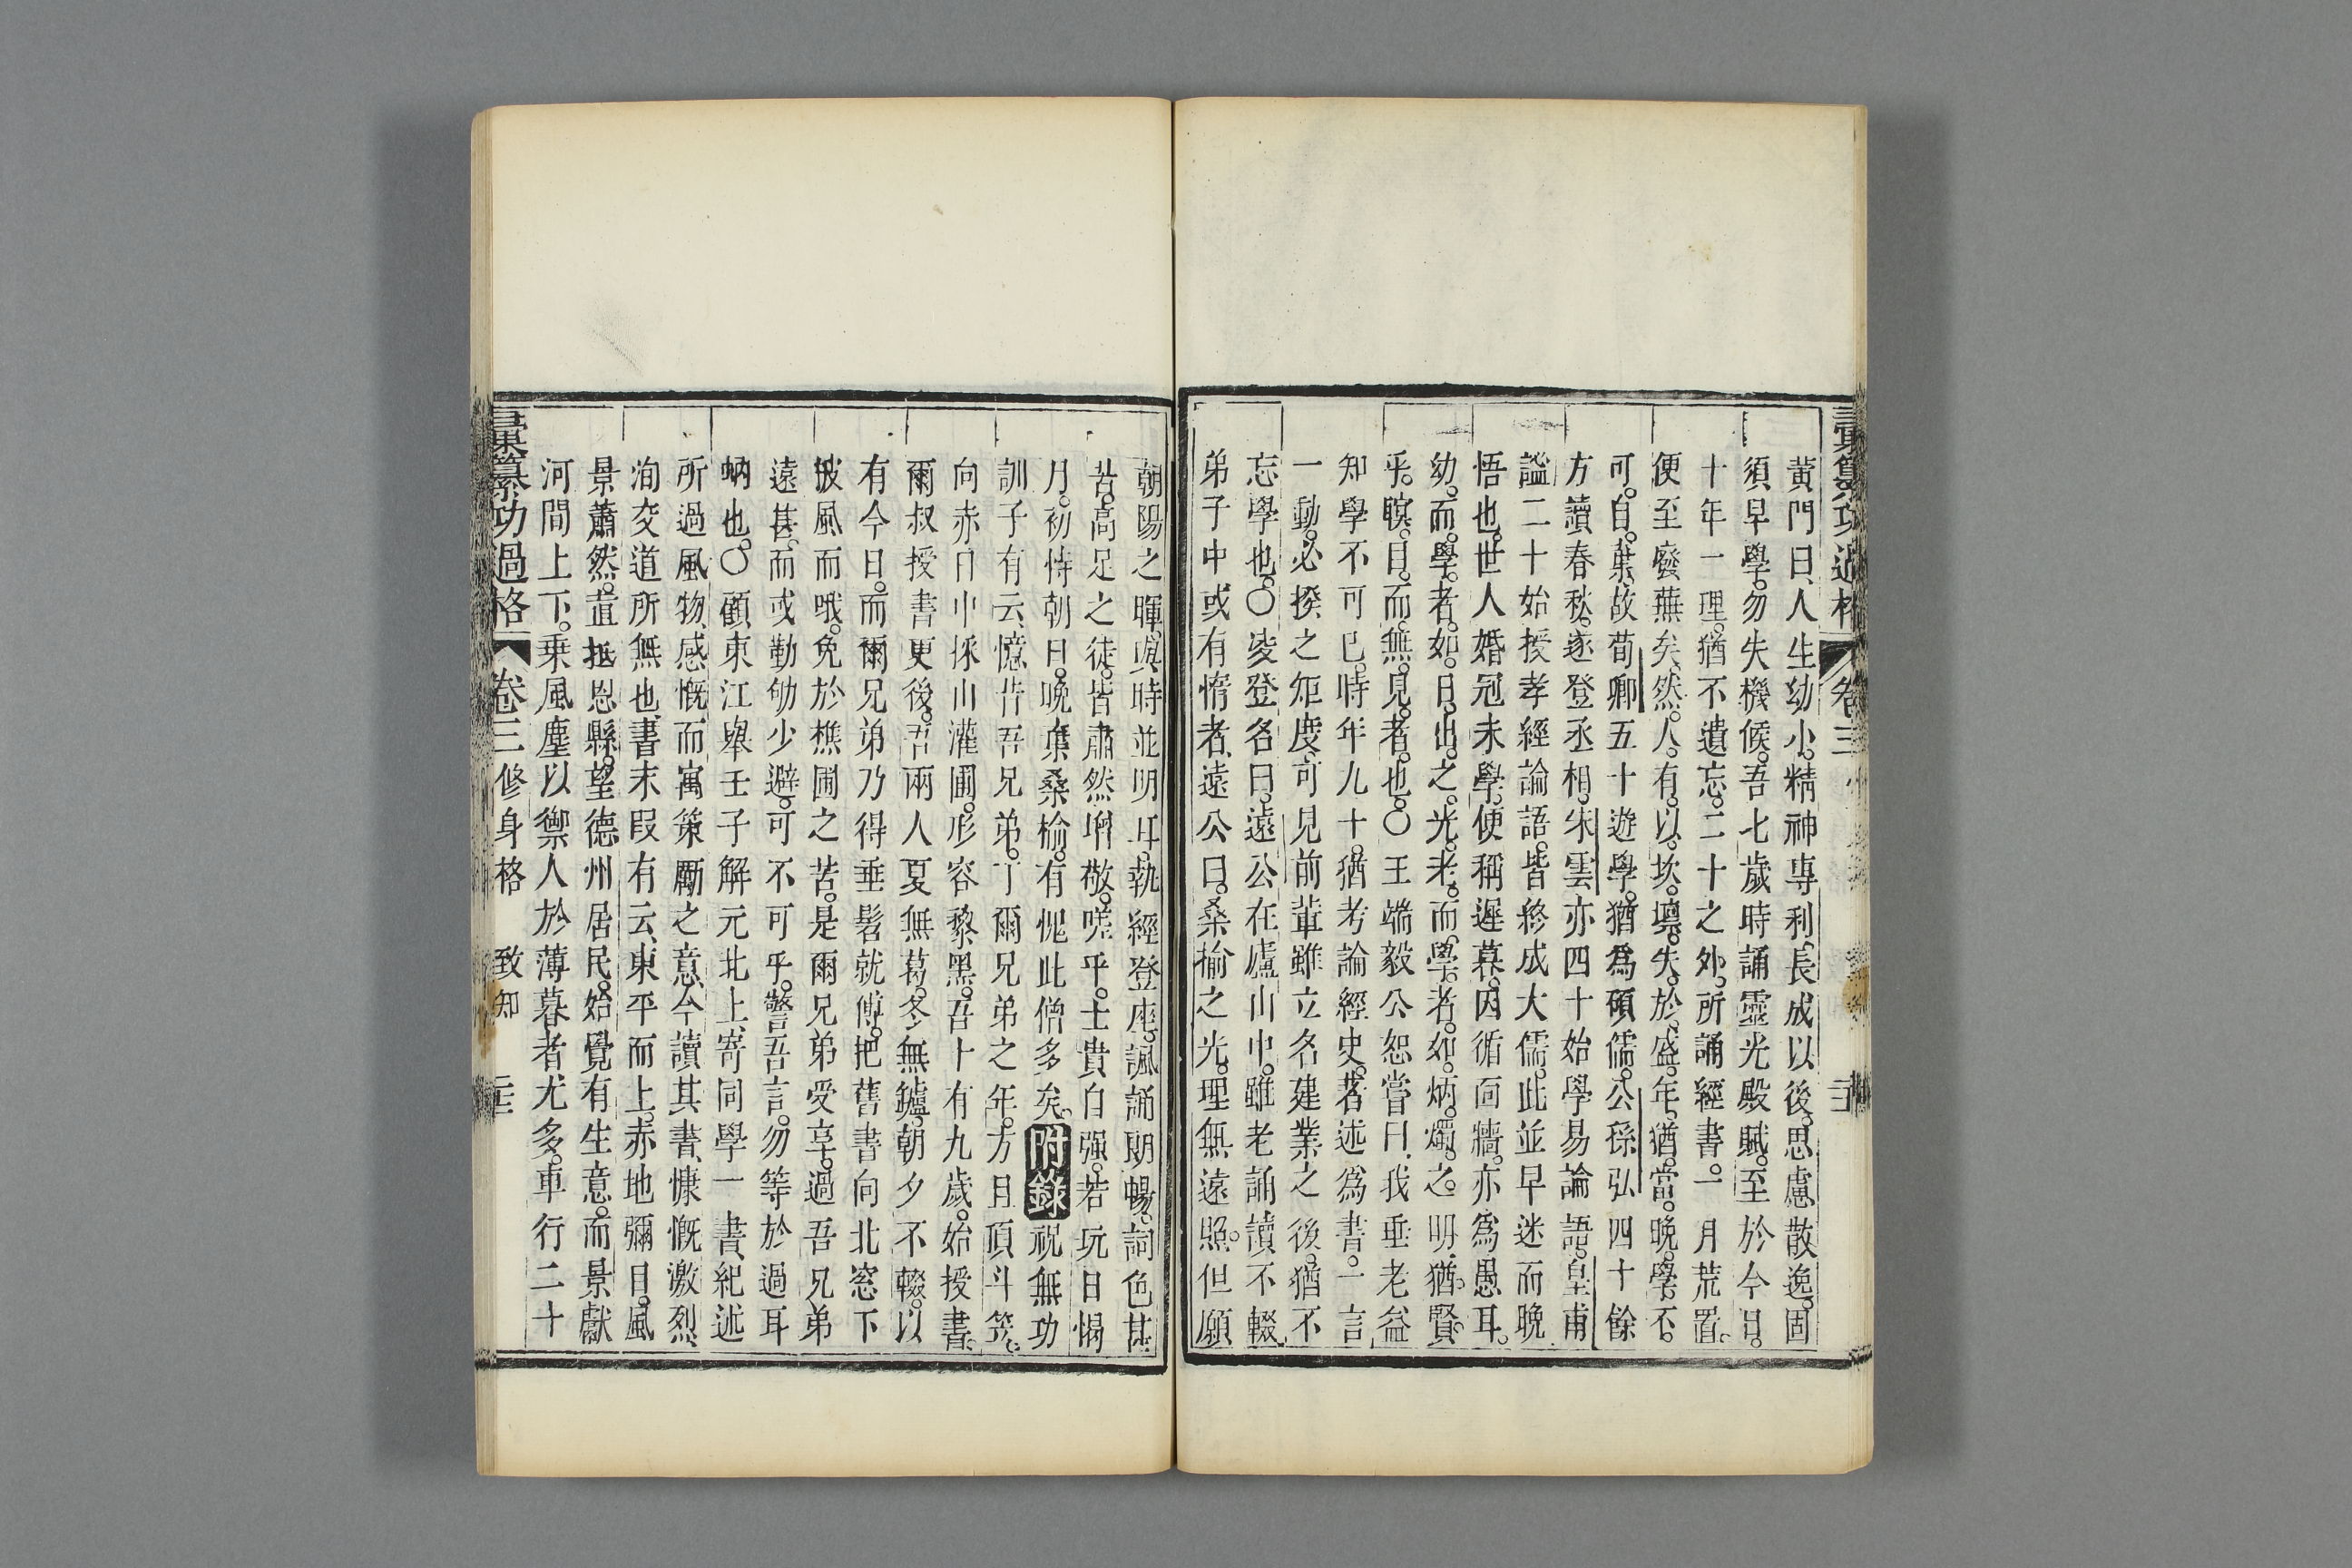 彙纂功過格　卷三
黃門曰、人生幼小。精神專利、長成以後。思慮散逸。固
須早學。勿失機候。吾七歲時誦靈光殿賦。至於今日。
十年一理。猶不遺忘。二十之外。所誦經書。一月荒置。
便至廢蕪矣。然。人。有。以。坎。壈。失。於。盛。年。猶。當。晚。學。不。
可。自。棄。故荀卿五十遊學。猶爲碩儒。公孫弘四十餘
方讀春秋。遂登丞相。朱雲亦四十始學易論語。皇甫
謐二十始授孝經論語。皆終成大儒。此並早迷而晚
悟也。世人婚冠未學。便稱遲暮。因循面牆。亦爲愚耳。
幼。而。學。者。如。日。出。之。光。老。而。學。者。如。炳。燭。之。明。猶。賢。
乎。瞑。目。而。無。見。者。也。〇王端毅公恕嘗曰、我垂老益
知學不可已。時年九十。猶考論經史。著述爲書。一言
一動。必揆之矩度。可見前輩雖立名建業之後。猶不
忘學也。〇凌登名曰。遠公在廬山中。雖老誦讀不輟、
弟子中或有惰者、遠公曰。桑揄之光。理無遠照。但願
朝陽之暉。與時並明耳。執經登座。諷誦朗暢。詞色甚
苦。高足之徒。皆肅然增敬。嗟乎。士貴自强。若玩日愒
月。初恃朝日。晚棄桑榆。有愧此僧多矣。附錄祝無功
訓子有云、憶昔吾兄弟。丁爾兄弟之年。方且頂斗笠。
向赤日中採山灌圃。形容黎黑。吾十有九歲。始授書。
爾叔授書更後。吾兩人夏無葛。冬無鑪。朝夕不輟。以
有今日。而爾兄弟乃得垂髫就傅。把舊書向北窓下
披風而哦。免於樵圃之苦。是爾兄弟受享。過吾兄弟
遠甚。而或勤劬少避。可不可乎。警吾言。勿等於過耳
蚋也。〇顧東江舉壬子解元北上、寄同學一書、紀述
所過風物、感慨而寓策勵之意、今讀其書、慷慨激烈、
洵交道所無也、書末叚有云、東平而上。赤地彌目。風
景蕭然。直抵恩縣。望德州居民。始覺有生意。而景獻
河間上下。乘風塵以禦人於薄暮者尤多。車行二十
彙纂功過格　卷三　修身格　致知